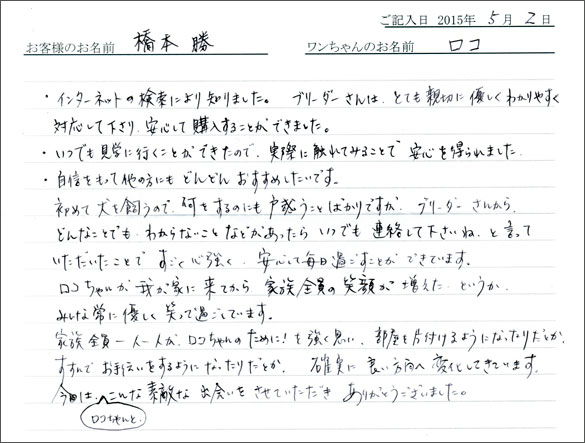 ご記入日 2015年 5月 2日
お客様のお名前 橋本 勝 ワンちゃんのお名前 ロコ
・インターネットの検索により知りました。 ブリーダーさんは、とても親切に優しくわかりやすく
対応して下さり、安心して購入することができました。
・いつでも見学に行くことができたので、実際に触れてみることで安心を得られました。
・自信をもって他の方にもどんどんおすすめしたいです。
初めて犬を飼うので、何をするのにも戸惑うことばかりですが、ブリーダーさんから、
どんなことでも、わからないことなどがあったらいつでも連絡して下さいね、と言って
いただいたことですごく心強く、安心して毎日過ごすことができています。
ロコちゃんが我が家に来てから家族全員の笑顔が増えた、というか、
みんな常に優しく笑って過ごしています。
家族全員一人一人が、ロコちゃんのために!を強く思い、部屋を片付けるようになったりだとか、
すすんでお手伝いをするようになったりだとか、確実に良い方向へ変化してきています。
今回は、こんな素敵な出会いをさせていただきありがとうございました。
ロコちゃんと、